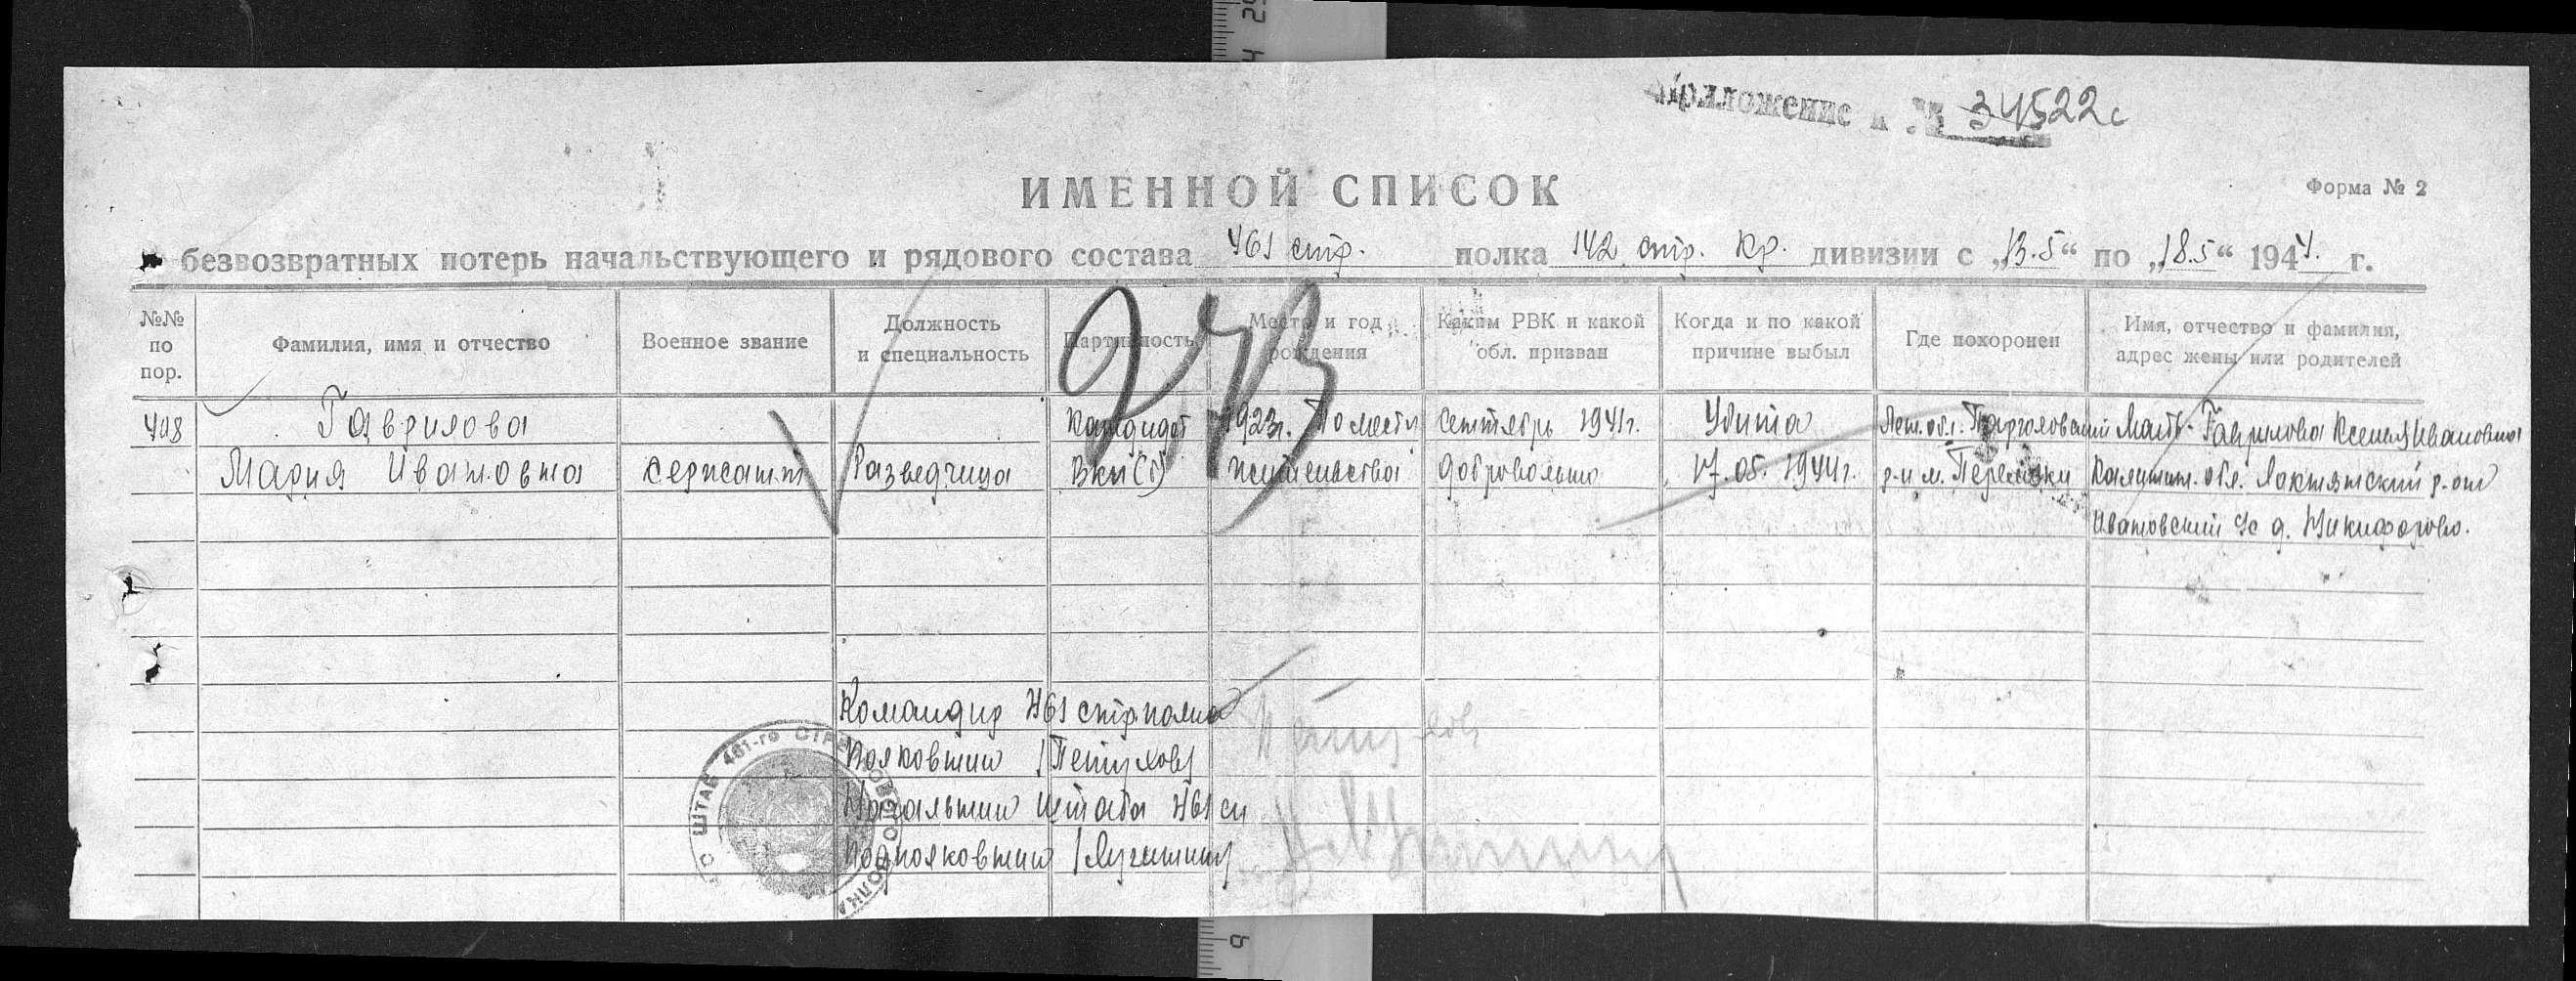 Приложение к № 34522с
ИМЕННОЙ СПИСОК
Форма № 2
безвозвратных потерь начальствующего и рядового состава 461 стр. полка 142 стр. Кр. дивизии с „13.5“ по „18.5“ 1944. г.
№№ по пор.
Фамилия, имя и отчество
Военное звание
Должность и специальность
Партийность
Место и год рождения
Каким РВК и какой обл. призван
Когда и по какой причине выбыл
Где похоронен
Имя, отчество и фамилия, адрес жены или родителей
Гаврилова Кандидат 1923г. По месту сентябрь 1941г. Убита Лен. обл. Парголовский Мать- Гаврилова Ксения Ивановна
Мария Ивановна сержант Разведчица ВКП(б) жительства добровольно 17.05.1944г. р-н м. Калинин. обл. р-он
Ивановский с/с д. Никифорово.
Командир 461 стр полка
Полковник /Петухов/
Начальник штаба 461 сп
Подполковник
ШТАБ 461-го СТРЕЛКОВОГО ПОЛКА